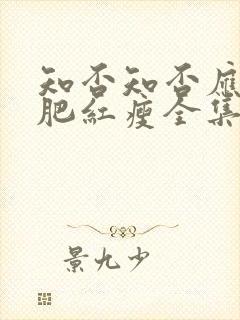 知否知否應
肥紅瘦全集
景九少